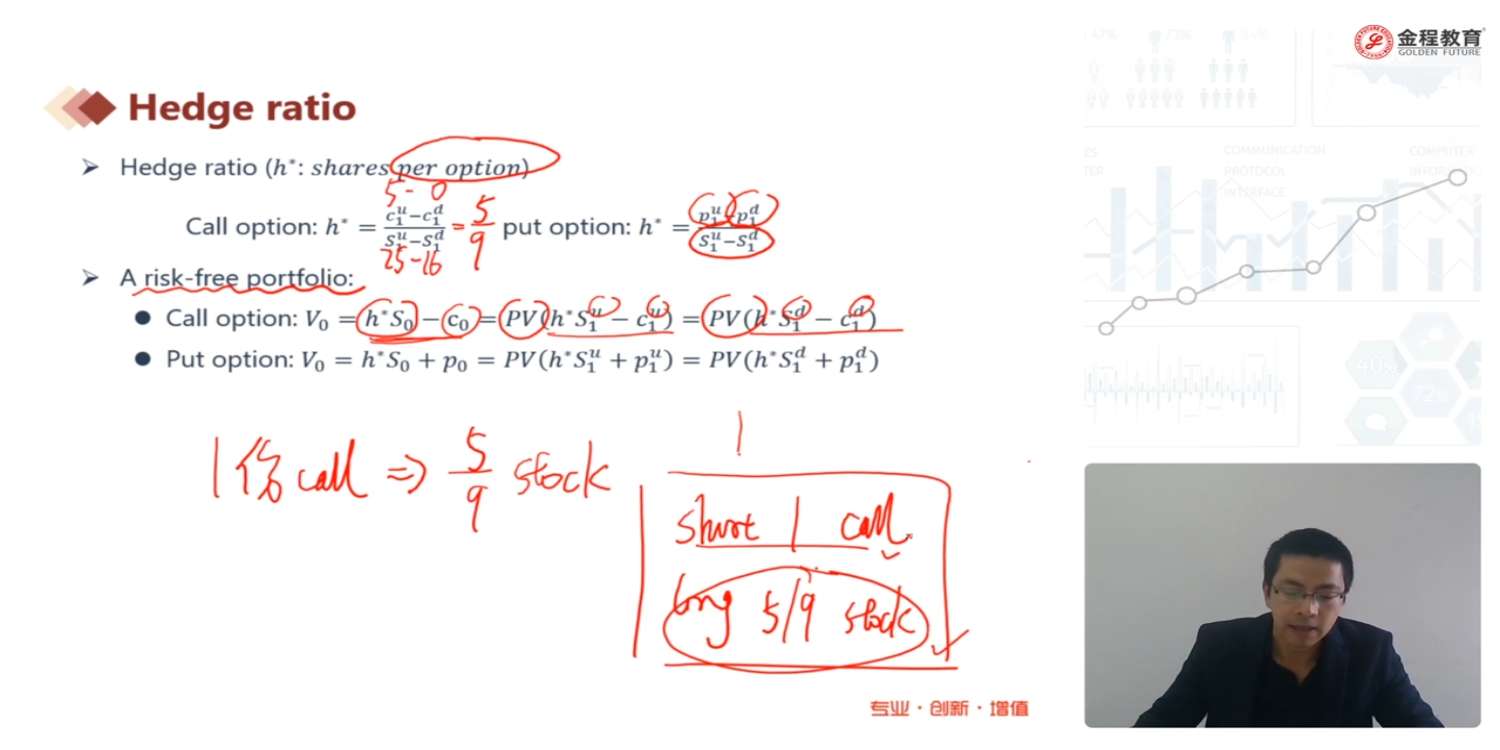 金程教育
GOLDEN FUTURE
Hedge ratio
➤ Hedge ratio (h*: shares per option)
5 - 0
Call option: h* = \frac{c_1^u - c_1^d}{S_1^u - S_1^d} = \frac{5}{9} put option: h* = \frac{p_1^u - p_1^d}{S_1^u - S_1^d}
25 - 16
➤ A risk-free portfolio:
● Call option: V_0 = h*S_0 − c_0 = PV(h*S_1^u − c_1^u) = PV(h*S_1^d − c_1^d)
● Put option: V_0 = h*S_0 + p_0 = PV(h*S_1^u + p_1^u) = PV(h*S_1^d + p_1^d)
1份call ⇒ \frac{5}{9} stock
short 1 call
long 5/9 stock
专业·创新·增值
COMMUNICATION
PROTOCOL
INTERFACE
40%
72%